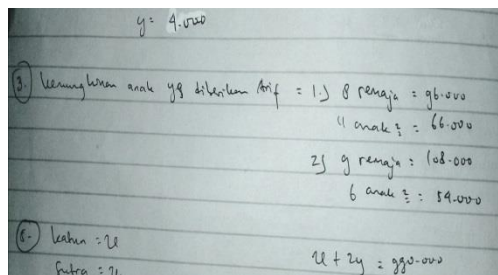 y = 4.000
3. Kemungkinan anak yg diberikan Arif = 1.) 8 remaja = 96.000
11 anak² = 66.000
2) 9 remaja = 108.000
6 anak² = 54.000
8. Katun = x
Sutra = y
x + 2y = 990.000